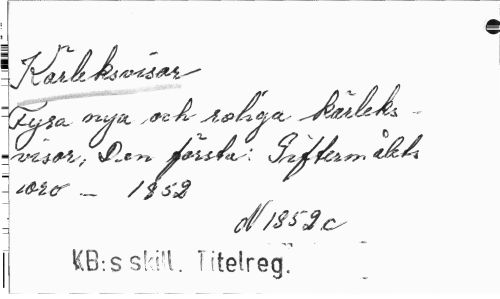 Kärleksvisor
Fyra nya och roliga kärleks-
visor, Den första: Giftermålets
oro - 1852
N 1852c
KB:s skill. Titelreg.